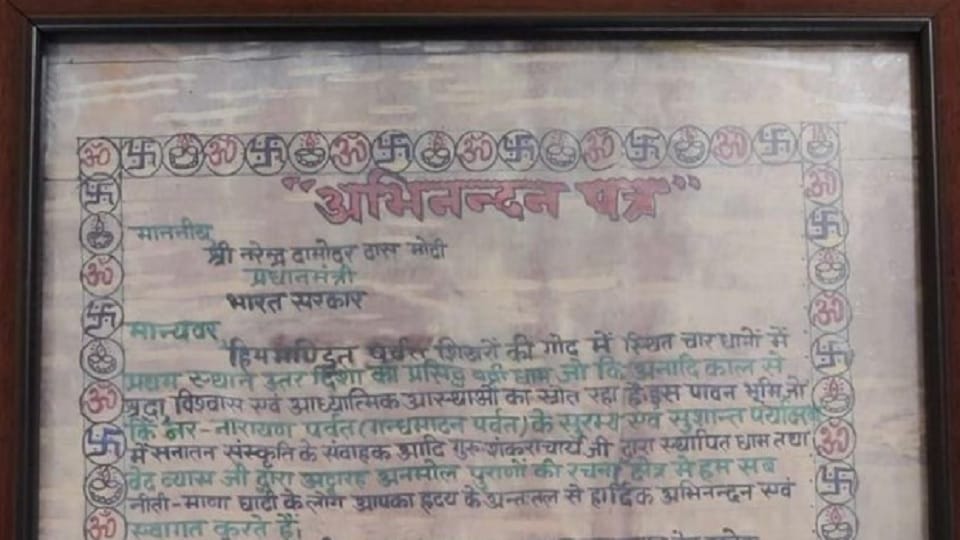 "अभिनन्दन पत्र"
माननीय
श्री नरेन्द्र दामोदर दास मोदी
प्रधानमंत्री
भारत सरकार
मान्यवर
हिममण्डित पर्वत शिखरों की गोद में स्थित चार धामों में
प्रथम स्थान उत्तर दिशा का प्रसिद्ध बद्री धाम जो कि अनादि काल से
श्रद्धा, विश्वास एवं आध्यात्मिक आस्थाओं का स्रोत रहा है। इस पावन भूमि जो
कि नर-नारायण पर्वत (गन्धमादन पर्वत) के सुरम्य एवं सुशान्त
में सनातन संस्कृति के संवाहक आदि गुरु शंकराचार्य जी द्वारा स्थापित धाम तथा
वेद व्यास जी द्वारा अट्ठारह अनमोल पुराणों की रचना क्षेत्र में हम सब
नीती-माणा घाटी के लोग आपका हृदय के अन्तःतल से हार्दिक अभिनन्दन एवं
स्वागत करते हैं।